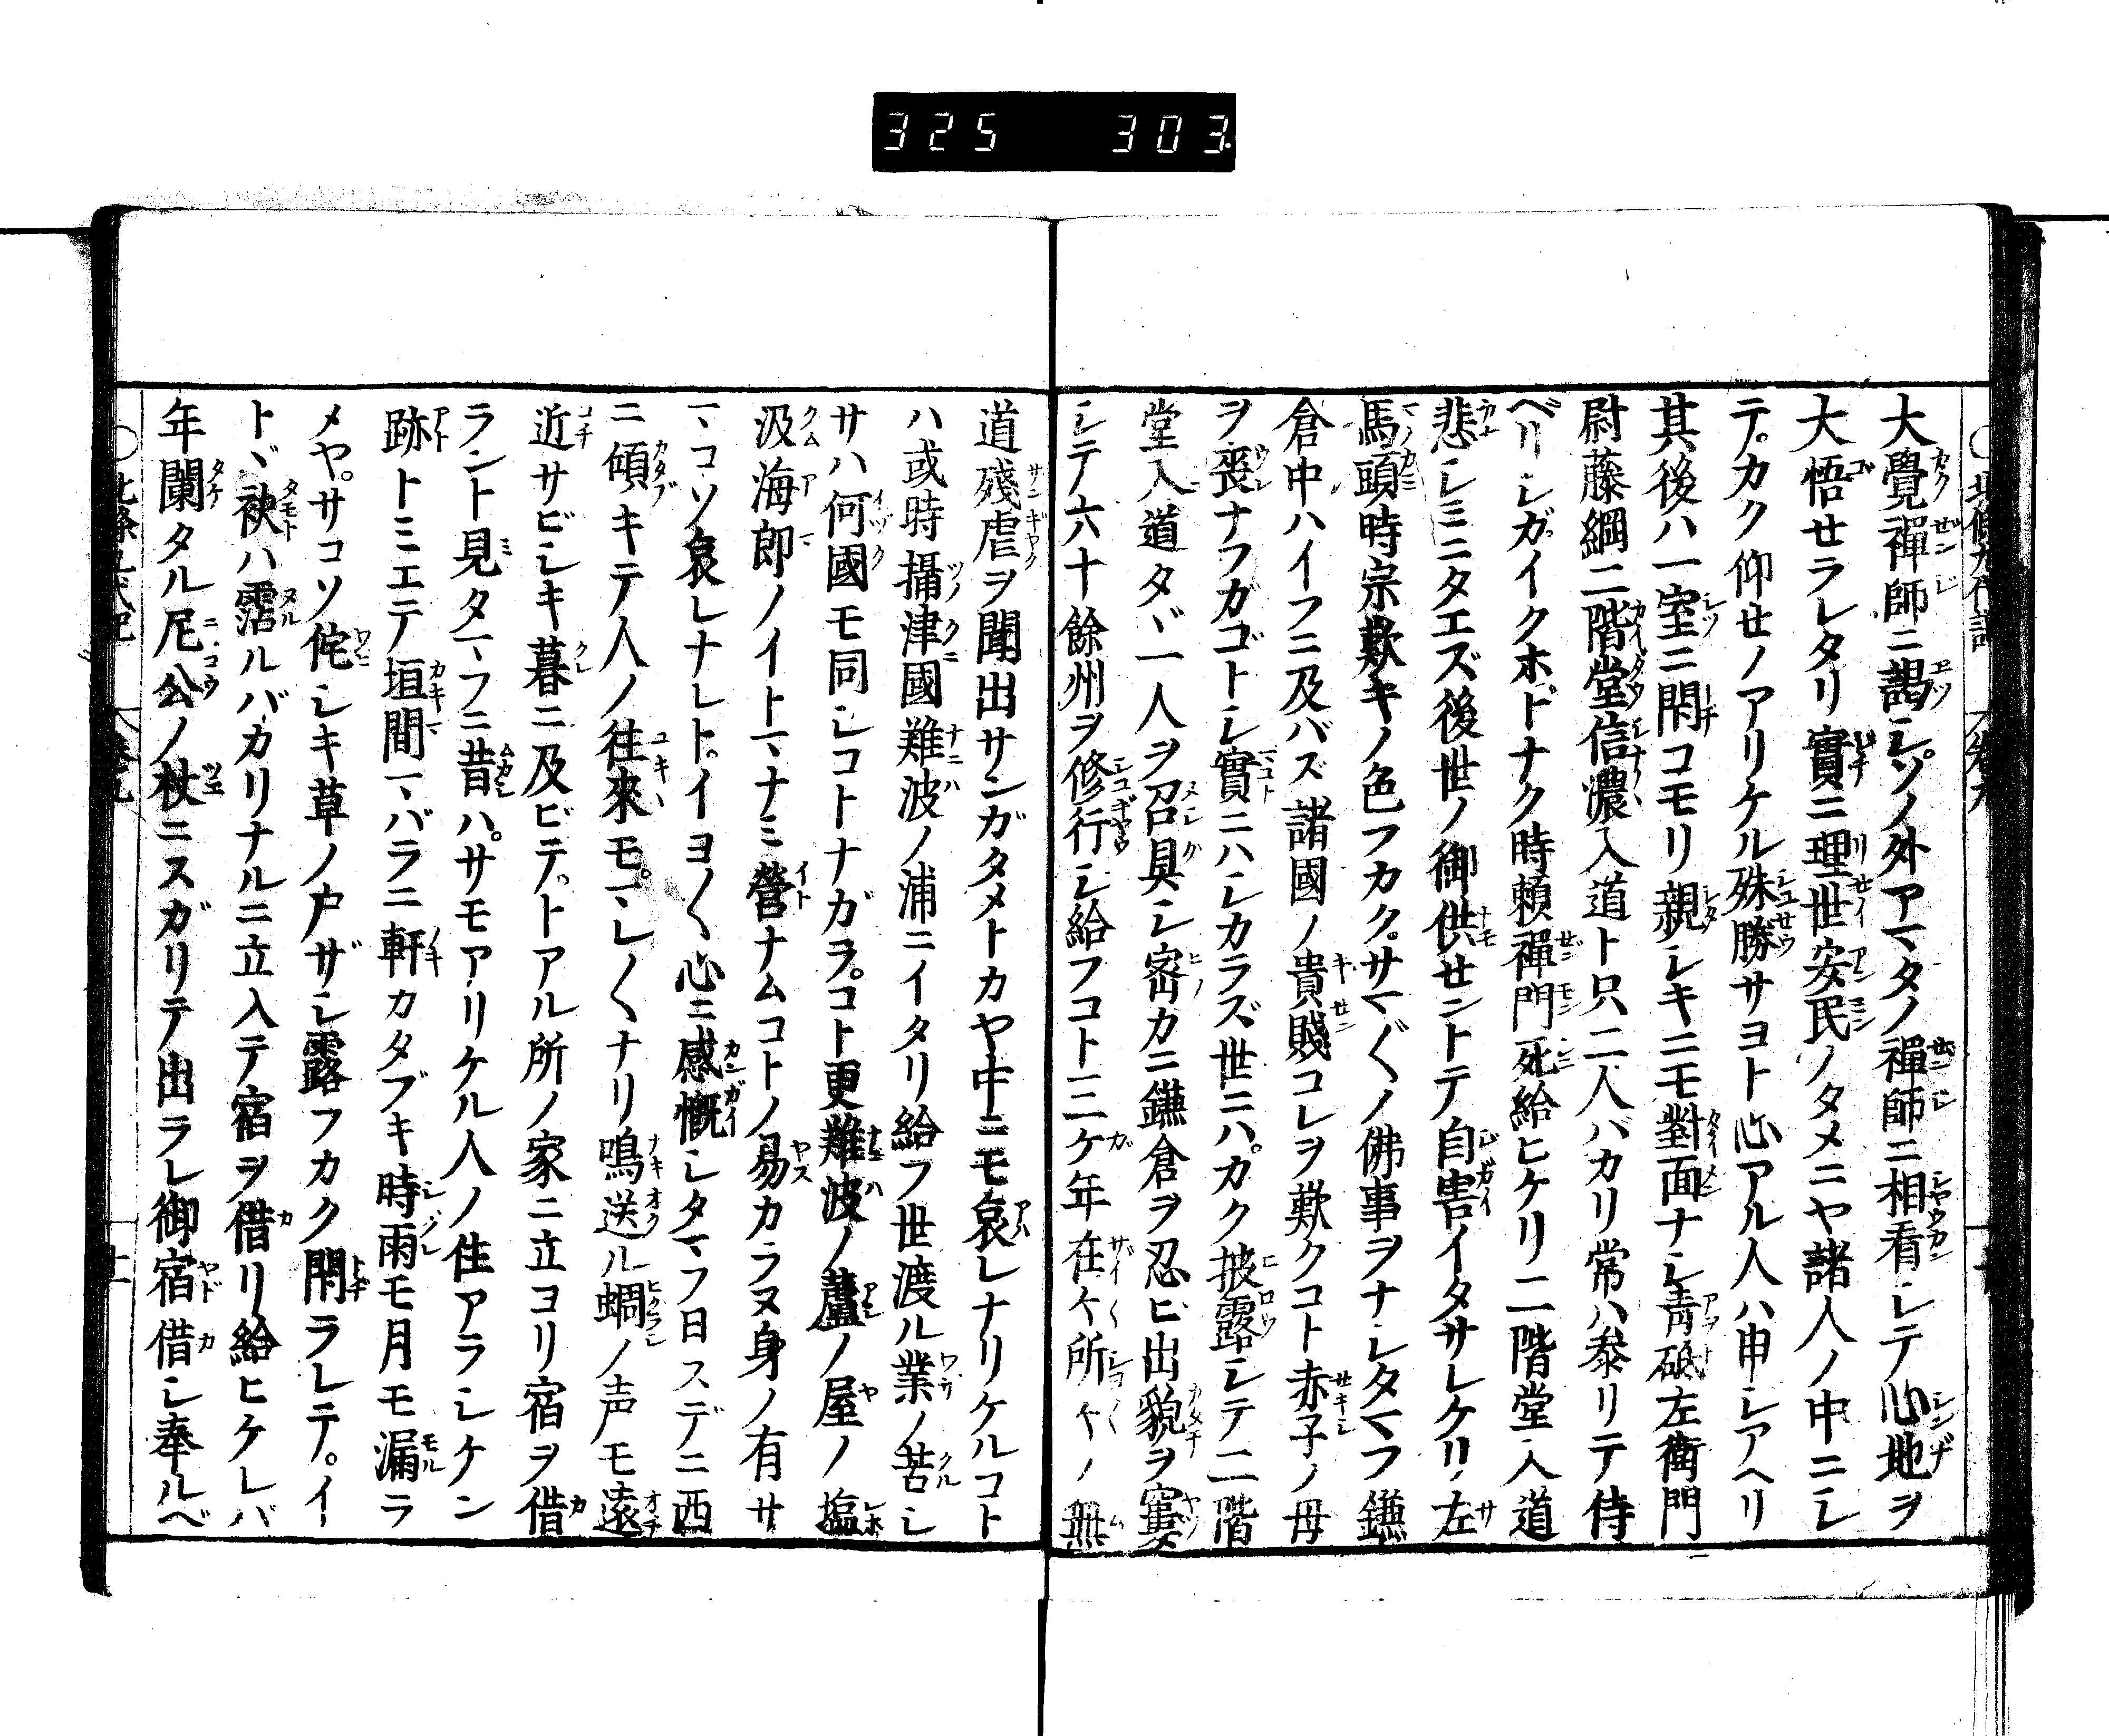 325 303
大覺禪師ニ謁シソノ外アマタノ禪師ニ相看シテ心地ヲ
大悟セラレタリ實ニ理世安民ノタメニヤ諸人ノ中ニシ
テ。カク仰セノアリケル殊勝サヨト心アル人ハ申シアヘリ
其後ハ一室ニ閇コモリ親シキニモ對面ナシ青砥左衞門
尉藤綱二階堂信濃入道ト只二人バカリ常ハ參リテ侍
ベリシガイクホドナク時頼禪門死給ヒケリ二階堂入道
悲シミニタエズ後世ノ御供セントテ自害イタサレケリ左
馬頭時宗歎キノ色フカク。サマ〴〵ノ佛事ヲナシタマフ鎌
倉中ハイフニ及バズ諸國ノ貴賤コレヲ歎クコト赤子ノ母
ヲ喪ナフガゴトシ實ニハシカラズ世ニハ。カク披露シテ二階
堂入道タヾ一人ヲ召具シ密カニ鎌倉ヲ忍ビ出貌ヲ窶
シテ六十餘州ヲ修行シ給フコト三ケ年在々所々ノ無
道殘虐ヲ聞出サンガタメトカヤ中ニモ哀レナリケルコト
ハ或時攝津國難波ノ浦ニイタリ給フ世渡ル業ノ苦シ
サハ何國モ同シコトナガラ。コト更難波ノ蘆ノ屋ノ塩
汲海郎ノイトマナミ營ナムコトノ易カラヌ身ノ有サ
マコソ哀レナレト。イヨ〱心ニ感慨シタマフ日スデニ西
ニ傾キテ人ノ往來モ。マレ〱ナリ鳴送ル蜩ノ声モ遠
近サビシキ暮ニ及ビテ。トアル所ノ家ニ立ヨリ宿ヲ借
ラント見タマフニ昔ハ。サモアリケル人ノ住アラシケン
跡トミエテ垣間マバラニ軒カタブキ時雨モ月モ漏ラ
メヤ。サコソ侘シキ草ノ戸ザシ露フカク閇ラレテ。イ
トヾ袂ハ霑ルバカリナルニ立入テ宿ヲ借リ給ヒケレバ
年闌タル尼公ノ杖ニスガリテ出ラレ御宿借シ奉ルベ